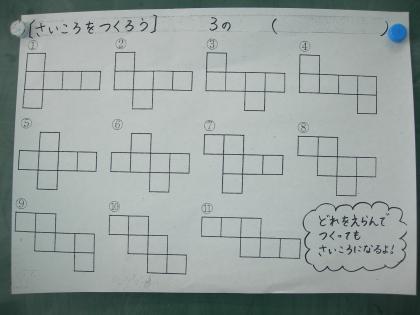 [さいころをつくろう] 3の ( )
① ② ③ ④
⑤ ⑥ ⑦ ⑧
⑨ ⑩ ⑪
どれをえらんで
つくっても
さいころになるよ!